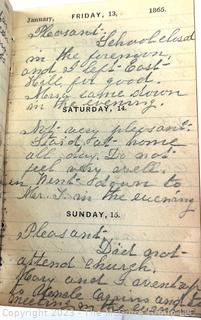 January, FRIDAY, 13, 1865.
Pleasant. School closed
in the forenoon,
and I left East
for good.
Mary came down
in the evening.
SATURDAY, 14.
Not very pleasant.
Staid at home
all day. Do not
feel very well.
Went down to
in the evening
SUNDAY, 15.
Pleasant
Did not
attend church.
Mary and I went up
to again and to
meeting in the evening
Copyright 2023